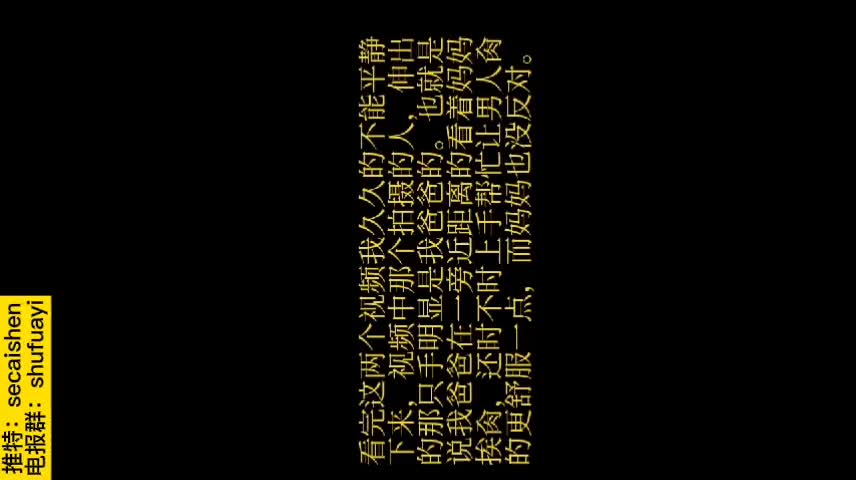 推特：secaishen
电报群：shufuayi
看完这两个视频我久久的不能平静
下来，视频中那个拍摄的人，伸出
的那只手明显是我爸爸的。也就是
说我爸爸在一旁近距离的看着妈妈
挨肏，还时不时上手帮忙让男人肏
的更舒服一点，而妈妈也没反对。